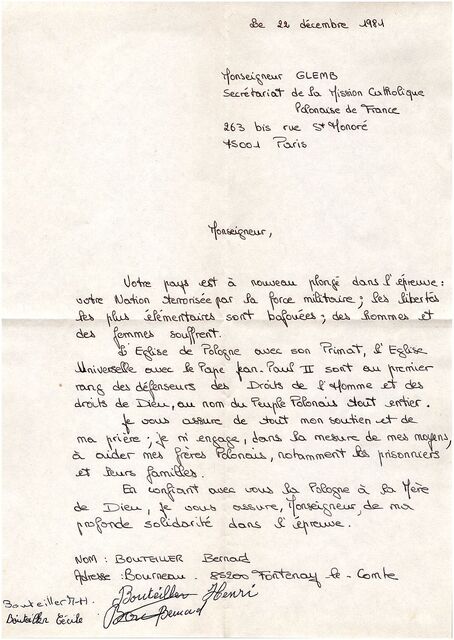 Le 22 décembre 1981
Monseigneur GLEMB
Secrétariat de la Mission Catholique
Polonaise de France
263 bis rue St Honoré
75001 Paris
Monseigneur,
Votre pays est à nouveau plongé dans l'épreuve :
votre Nation terrorisée par la force militaire ; les libertés
les plus élémentaires sont bafouées ; des hommes et
des femmes souffrent.
L'Eglise de Pologne avec son Primat, l'Eglise
Universelle avec le Pape Jean-Paul II sont au premier
rang des défenseurs des Droits de l'Homme et des
droits de Dieu, au nom du Peuple Polonais tout entier.
Je vous assure de tout mon soutien et de
ma prière ; je m'engage, dans la mesure de mes moyens,
à aider mes frères Polonais, notamment les prisonniers
et leurs familles.
En confiant avec vous la Pologne à la Mère
de Dieu, je vous assure, Monseigneur, de ma
profonde solidarité dans l'épreuve.
NOM : BOUTEILLER Bernard
Adresse : Bourneau . 85200 Fontenay-le-Comte
Bouteiller M-H.
Bouteiller Henri
Bouteiller Cécile
Bernard